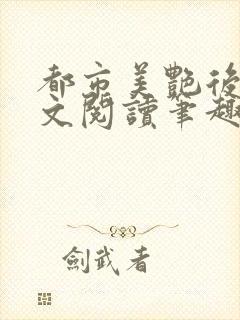 都市美艷後
文閱讀筆趣
劍武者